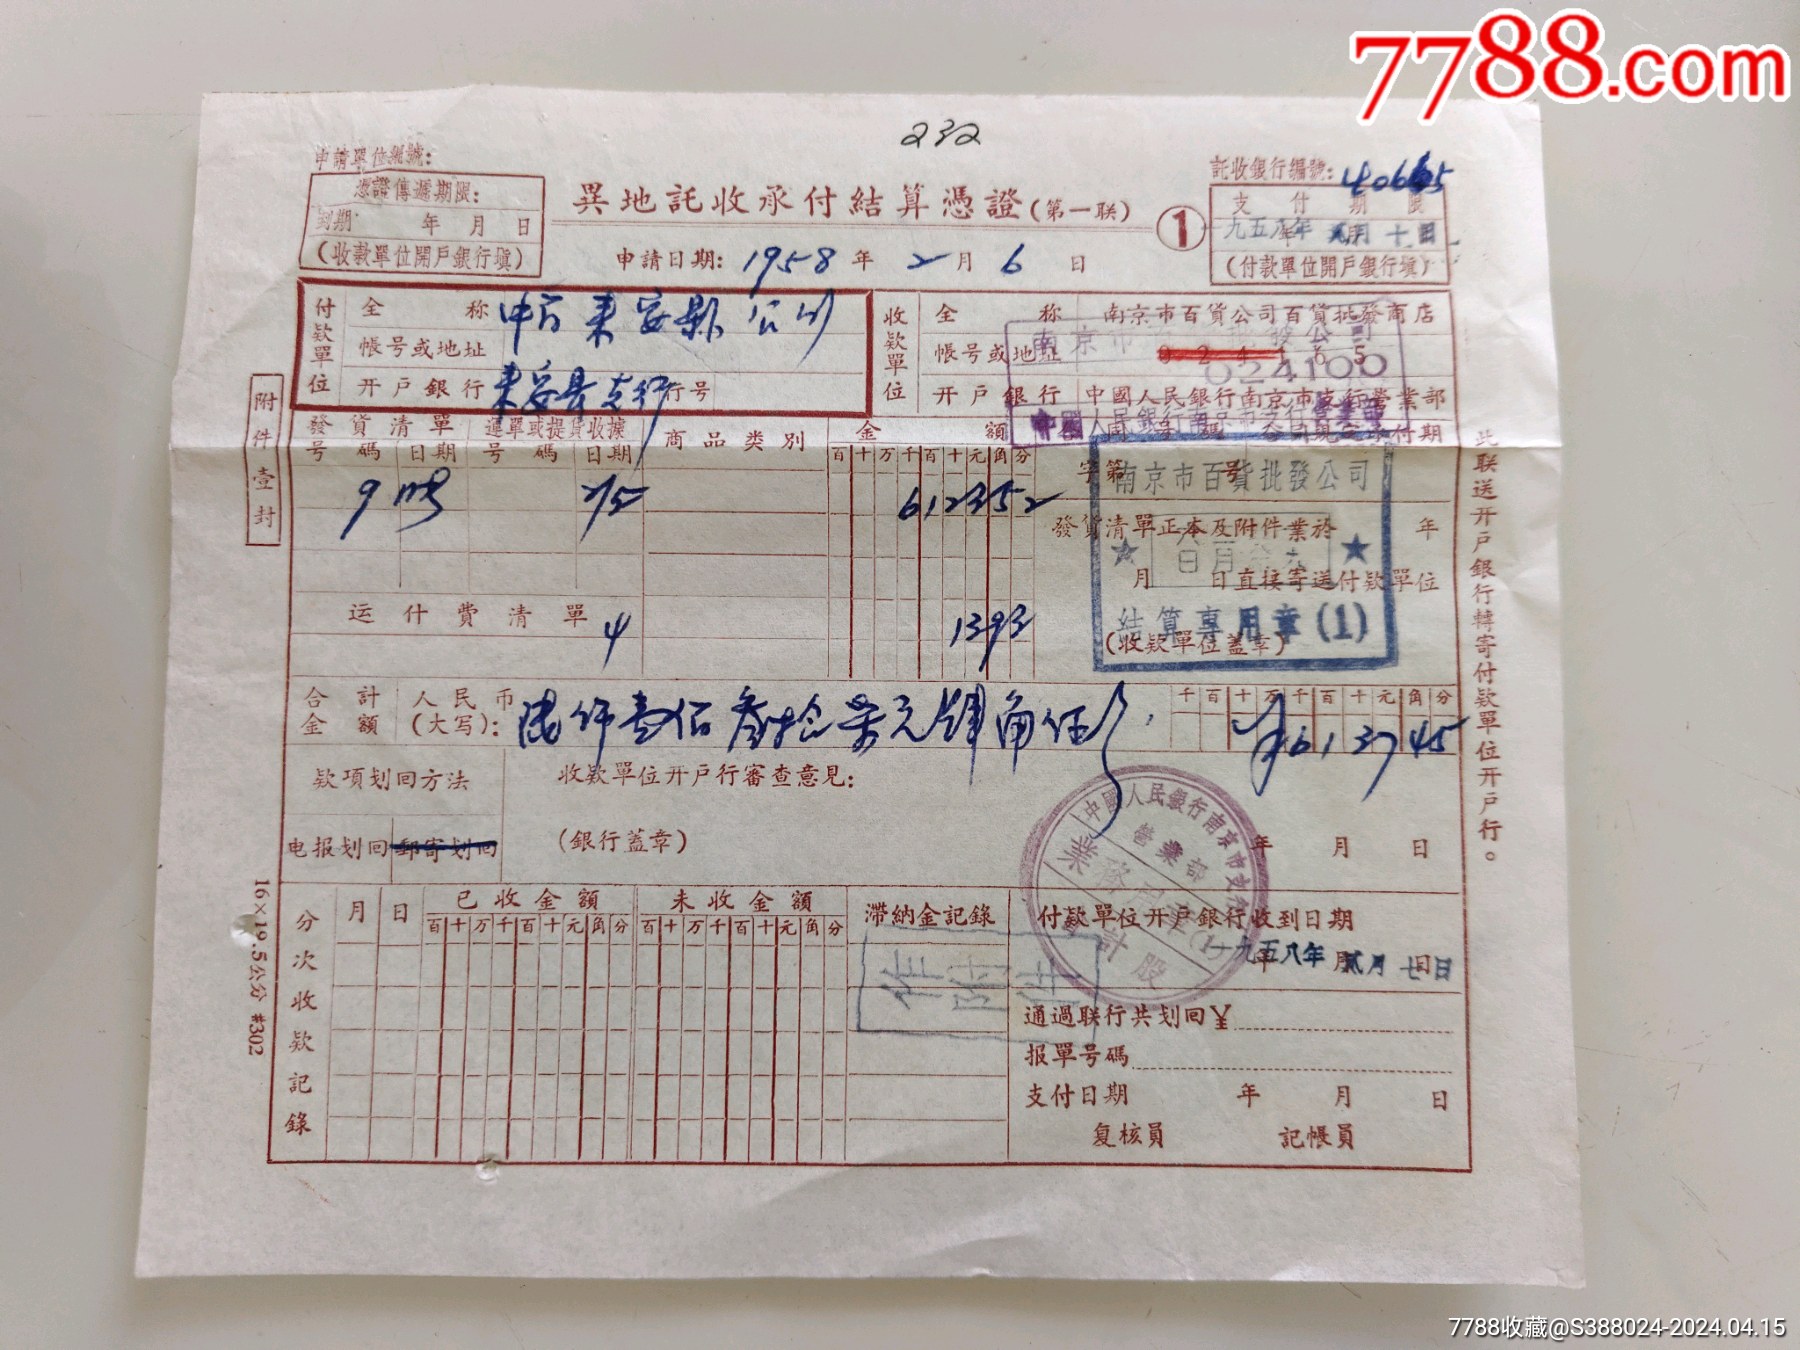 7788.com
232
申請單位編號:
憑證傳遞期限:
到期 年 月 日
(收款單位開戶銀行填)
異地託收承付結算憑證(第一联)
①
申請日期: 1958 年 2 月 6 日
託收銀行編號:
支付期限
一九五八年 貳月 十日
(付款單位開戶銀行填)
付款單位
全称
帳号或地址
开戶銀行 来安县支行 行号
收款單位
全称 南京市百貨公司百貨批發商店
帳号或地址
024100
开戶銀行 中國人民銀行南京市支行營業部
中國人民銀行南京市支行營業部
附件壹封
發貨清單
号碼 日期
運單或提貨收據
号碼 日期
商品类別
金額
百十万千百十元角分
9 2/5 612352
字第 号
南京市百貨批發公司
發貨清單正本及附件業於 年
月 日直接寄送付款單位
結算專用章(1)
(收款單位蓋章)
运什費清單 4 1393
合計金額
人民币(大写): 陆仟壹佰叁拾柒元肆角伍分
千百十万千百十元角分
613745
款項划回方法
电报划回 郵寄划回
收款單位开戶行審查意見:
(銀行蓋章)
年 月 日
中國人民銀行南京市支行
營業部
分次收款記錄
月 日
已收金額
百十万千百十元角分
未收金額
百十万千百十元角分
滞納金記錄
作附件
付款單位开戶銀行收到日期
一九五八年 貳月 七日
通過联行共划回¥
报單号碼
支付日期 年 月 日
复核員 記帳員
此联送开戶銀行轉寄付款單位开戶行。
16×19.5公分 #302
7788收藏@S388024-2024.04.15